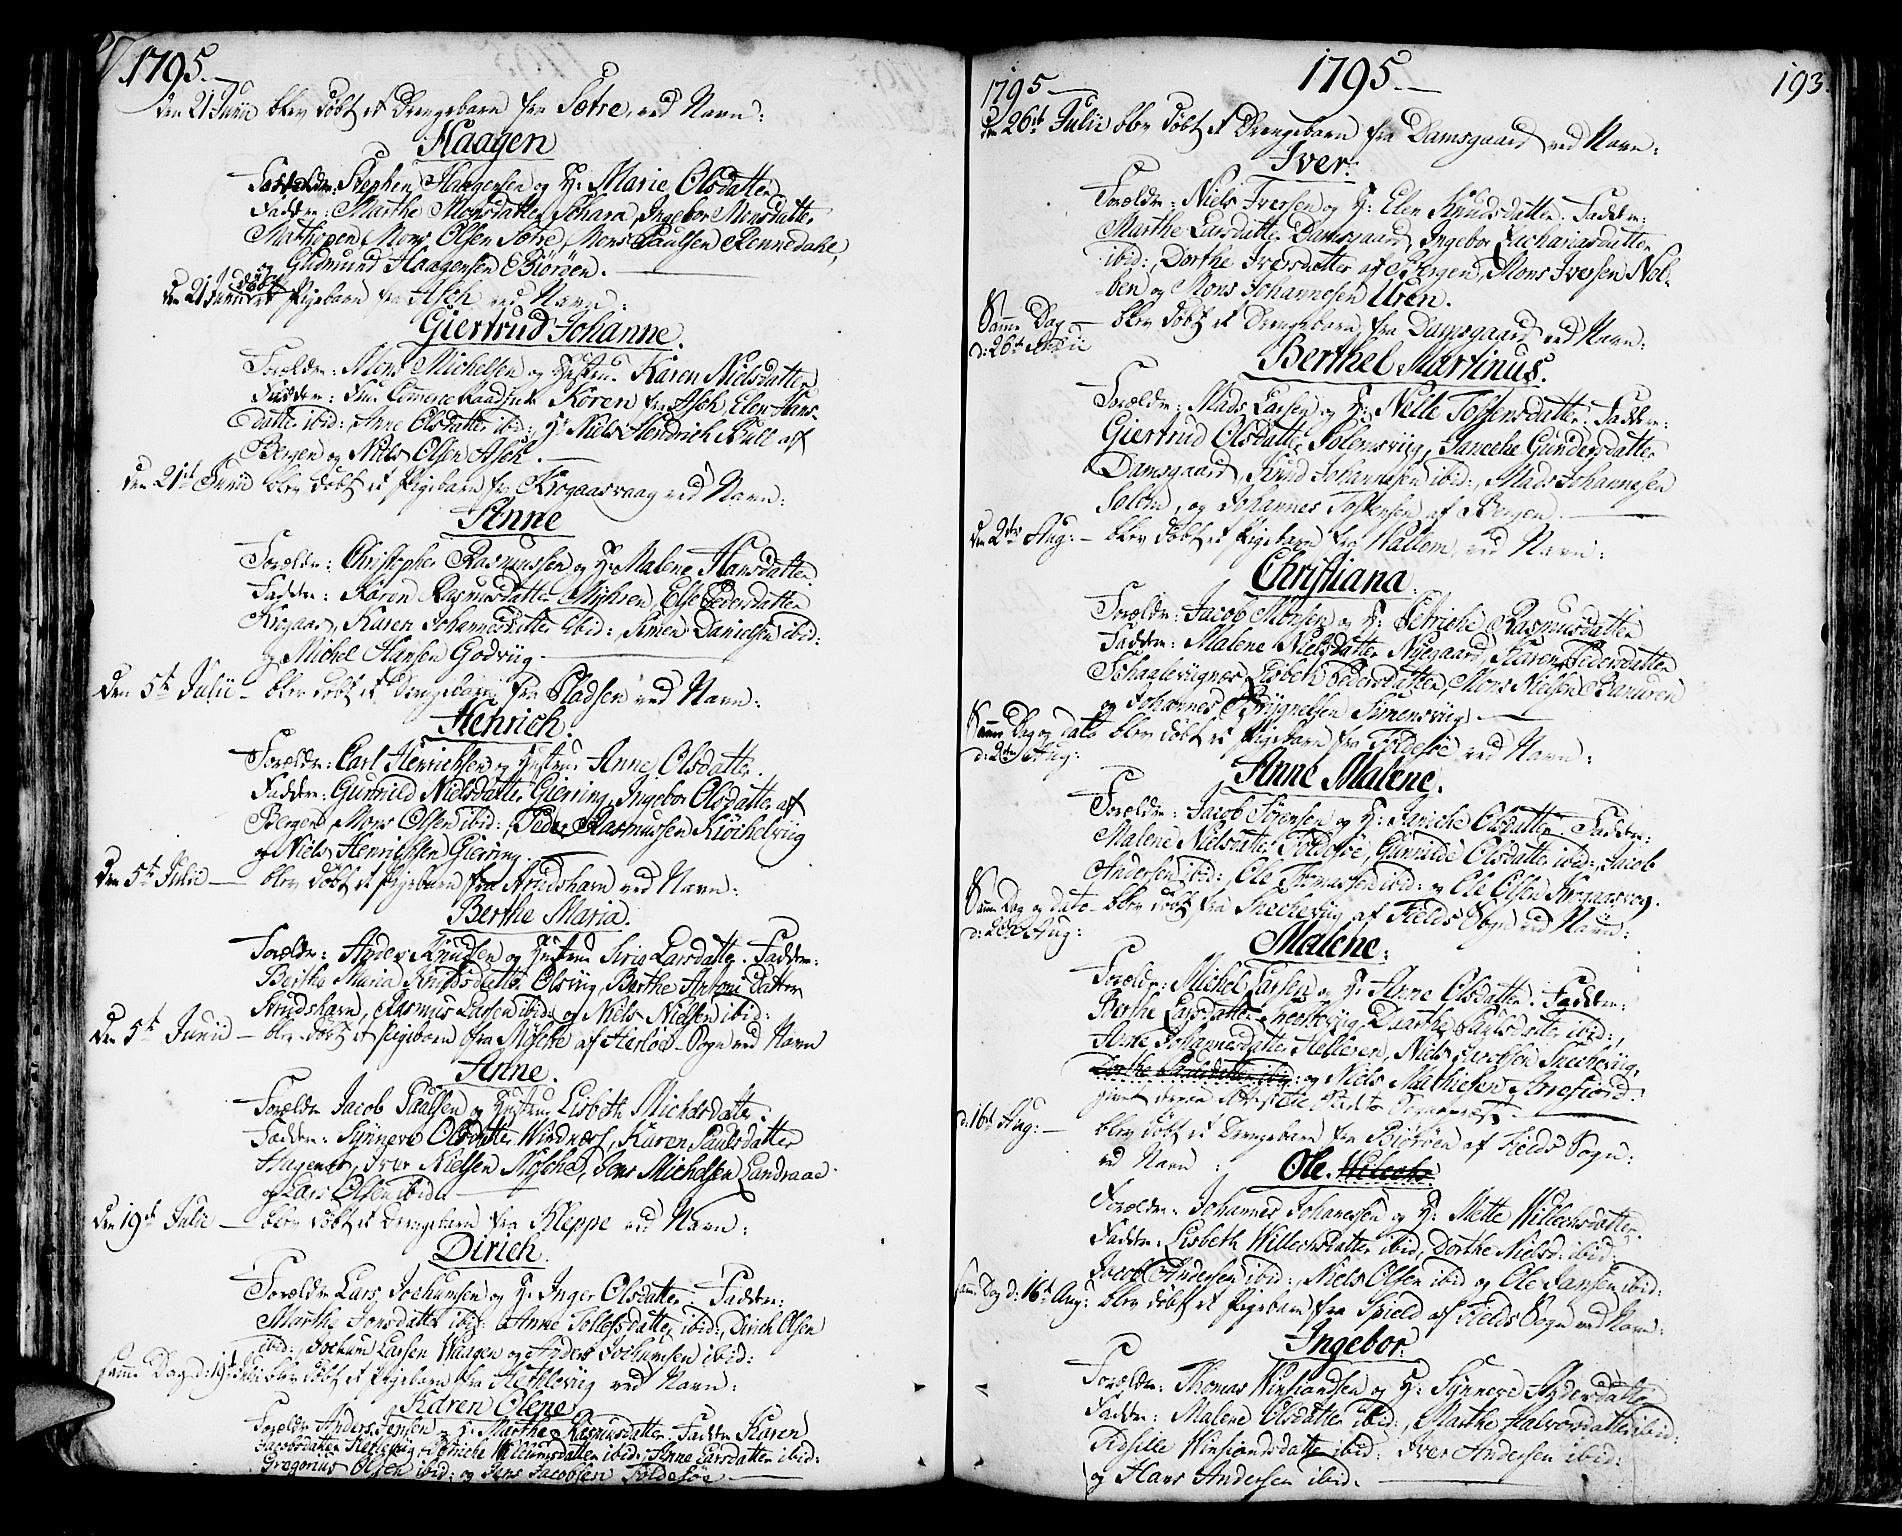 1795.
den 21 Junii blev döbt et Drengebarn fra Sætre, ved Navn:
Haagen
Forældr: Stephen Haagensen og H: Marie Olsdatter
Faddr: Marthe Monsdatter Johara, Ingebor Monsdatter
Mathopen, Mons Olsen Sætre, Mons Paulsen Rennedahl,
og Gudmund Haagensen Biöröen.
den 21 Junii döbt et Pigebarn fra Ask ved Navn:
Giertrud Johanne.
Forældr: Mons Michelsen og Hustru Karen Nielsdatter
Faddr: Commerce Raadinde Koren fra Ask, Elen Hans-
datter ibid:, Anne Olsdatter ibid:, Hr Niels Hendrich Bull af
Bergen og Niels Olsen Ask.
den 21de Junii blev döbt et Pigebarn fra Krogaasvaag ved Navn:
Anne
Forældr: Christopher Rasmussen og H: Malene Hansdatter
Faddr: Karen Rasmusdatter, Else Pedersdatter
Krogaas, Karen Johannesdatter ibid:, Simen Danielsen ibid:
og Michel Hansen Godviig
Den 5te Julii – blev döbt et Drengebarn fra Pladsen ved Navn:
Henrich.
Forældr: Carl Henrichsen og Hustru Anne Olsdatter.
Faddr: Gunnild Nielsdatter Giering, Ingebor Olsdatter af
Bergen, Mons Olsen ibid:, Peder Rasmussen Kiöchelviig
og Niels Henrichsen Giering.
Den 5te Julii – blev döbt et Pigebarn fra Strudshavn ved Navn:
Berthe Maria.
Forældr: Anders Knudsen og Hustrue Siri Larsdatter. Faddr:
Berthe Maria Knudsdatter Olsviig, Berthe Antoni datter
Strudshavn, Rasmus Larsen ibid: og Niels Nielsen ibid:
Den 5te Junii – blev döbt et Pigebarn fra af Herlöe Sogn ved Navn
Anne.
Forældr Jacob Paulsen og Hustrue Lisbeth Michelsdatter.
Faddr: Synneve Olsdatter Windnæs, Karen Paulsdatter
Hagenes, Iver Nielsen, Jens Michelsen Landraae
og Lars Olsen ibid.
Den 19de Julii – blev döbt et Drengebarn fra Kleppe ved Navn:
Dirich.
Forældr Lars Jochumsen og H: Inger Olsdatter Faddr:
Marthe Jonsdatter ibid: Anne Tollefsdatter ibid:, Dirich Olsen
ibid:, Jochum Larsen Waagen og Anders Jochumsen ibid:
samme Dag d: 19de Julii blev döbt et Pigebarn fra Hetleviig ved Navn:
Karen Olene
Forældr Anders Jensen – H: Marthe Rasmusdatter. Faddr Karen
Jacobsdatter Hetleviig, Petriche Willumsdatter ibid:, Anne Larsdatter ibid:
Gregorius Olsen ibid: og Jens Jacobsen Foldesöe
1795
1795.
193.
den 26de Julii blev döbt et Drengebarn fra Damsgaard ved Navn:
Iver.
Forældr: Niels Iversen og H: Elen Knudsdatter. Faddr:
Marthe Larsdatter Damsgaard, Ingebor Zachariasdatter
ibid:, Dorthe Iversdatter af Bergen, Mons Iversen Nol-
ben og Mons Johannesen Uren.
Samme Dag – blev döbt et Drengebarn fra Damsgaard ved Navn:
d: 26de Julii
Berthel Martinus.
Forældr: Mads Larsen og H: Nelle Tostensdatter. Faddr:
Giertrud Olsdatter Solemsviig, Janeche Gundersdatter
Damsgaard, Knud Johannesen ibid:, Mads Johannesen
Solem, og Johannes Tostensen af Bergen
den 2den Aug: – blev döbt et Pigebarn fra Wallem, ved Navn:
Christiana
Forældr: Jacob Monsen og H: Petriche Rasmusdatter
Faddr: Malene Nielsdatter Nyegaard, Karen Pedersdatter
Schaaleviignes, Lisbeth Pedersdatter, Mons Nielsen
og Johannes Brygnelsen Simensviig
Samme Dag og dato blev döbt et Pigebarn fra Foldesöe ved Navn:
d: 2den Aug:
Anne Malene.
Forældr: Jacob Sörensen og H: Janiche Olsdatter. Faddr:
Malene Nielsdatter Foldesöe, Gunnilde Olsdatter ibid:, Jacob
Andersen ibid:, Ole Thomassen ibid: og Ole Olsen Krogaasvog.
Samme Dag og dato – blev döbt fra Snecheviig af Fields Sogn ved Navn:
d: 2den Aug:
Malene.
Forældr: Michel Larsen og H: Anne Olsdatter. Faddr:
Berthe Larsdatter Snecheviig, Daarthe Paulsdatter ibid:,
Anne Johannesdatter Helleren, Niels Snecheviig,
og Niels Mathiesen Arrefiord.
d: 16de Aug: – blev döbt et Drengebarn fra Biöröen af Fields Sogn:
ved Navn:
Ole. Willechs
Forældr: Johannes Johanesen og H: Mette Willechsdatter
Faddr: Lisbeth Willechsdatter ibid, Dorthe Nielsd: ibid:
Jacob Andersen ibid:, Niels Olsen ibid og Ole Jansen ibid:
samme Dag d: 16de Aug: blev döbt et Pigebarn fra Spield af Fields Sogn ved Navn:
Ingebor
Forældr: Thomas Winsiandsen og H: Synneve Andersdatter
Faddr: Malene Olsdatter ibid:, Marthe Halvorsdatter ibid:
Zidselle Winsiandsdatter ibid: Iver Andersen ibid:
og Hans Andersen ibid: